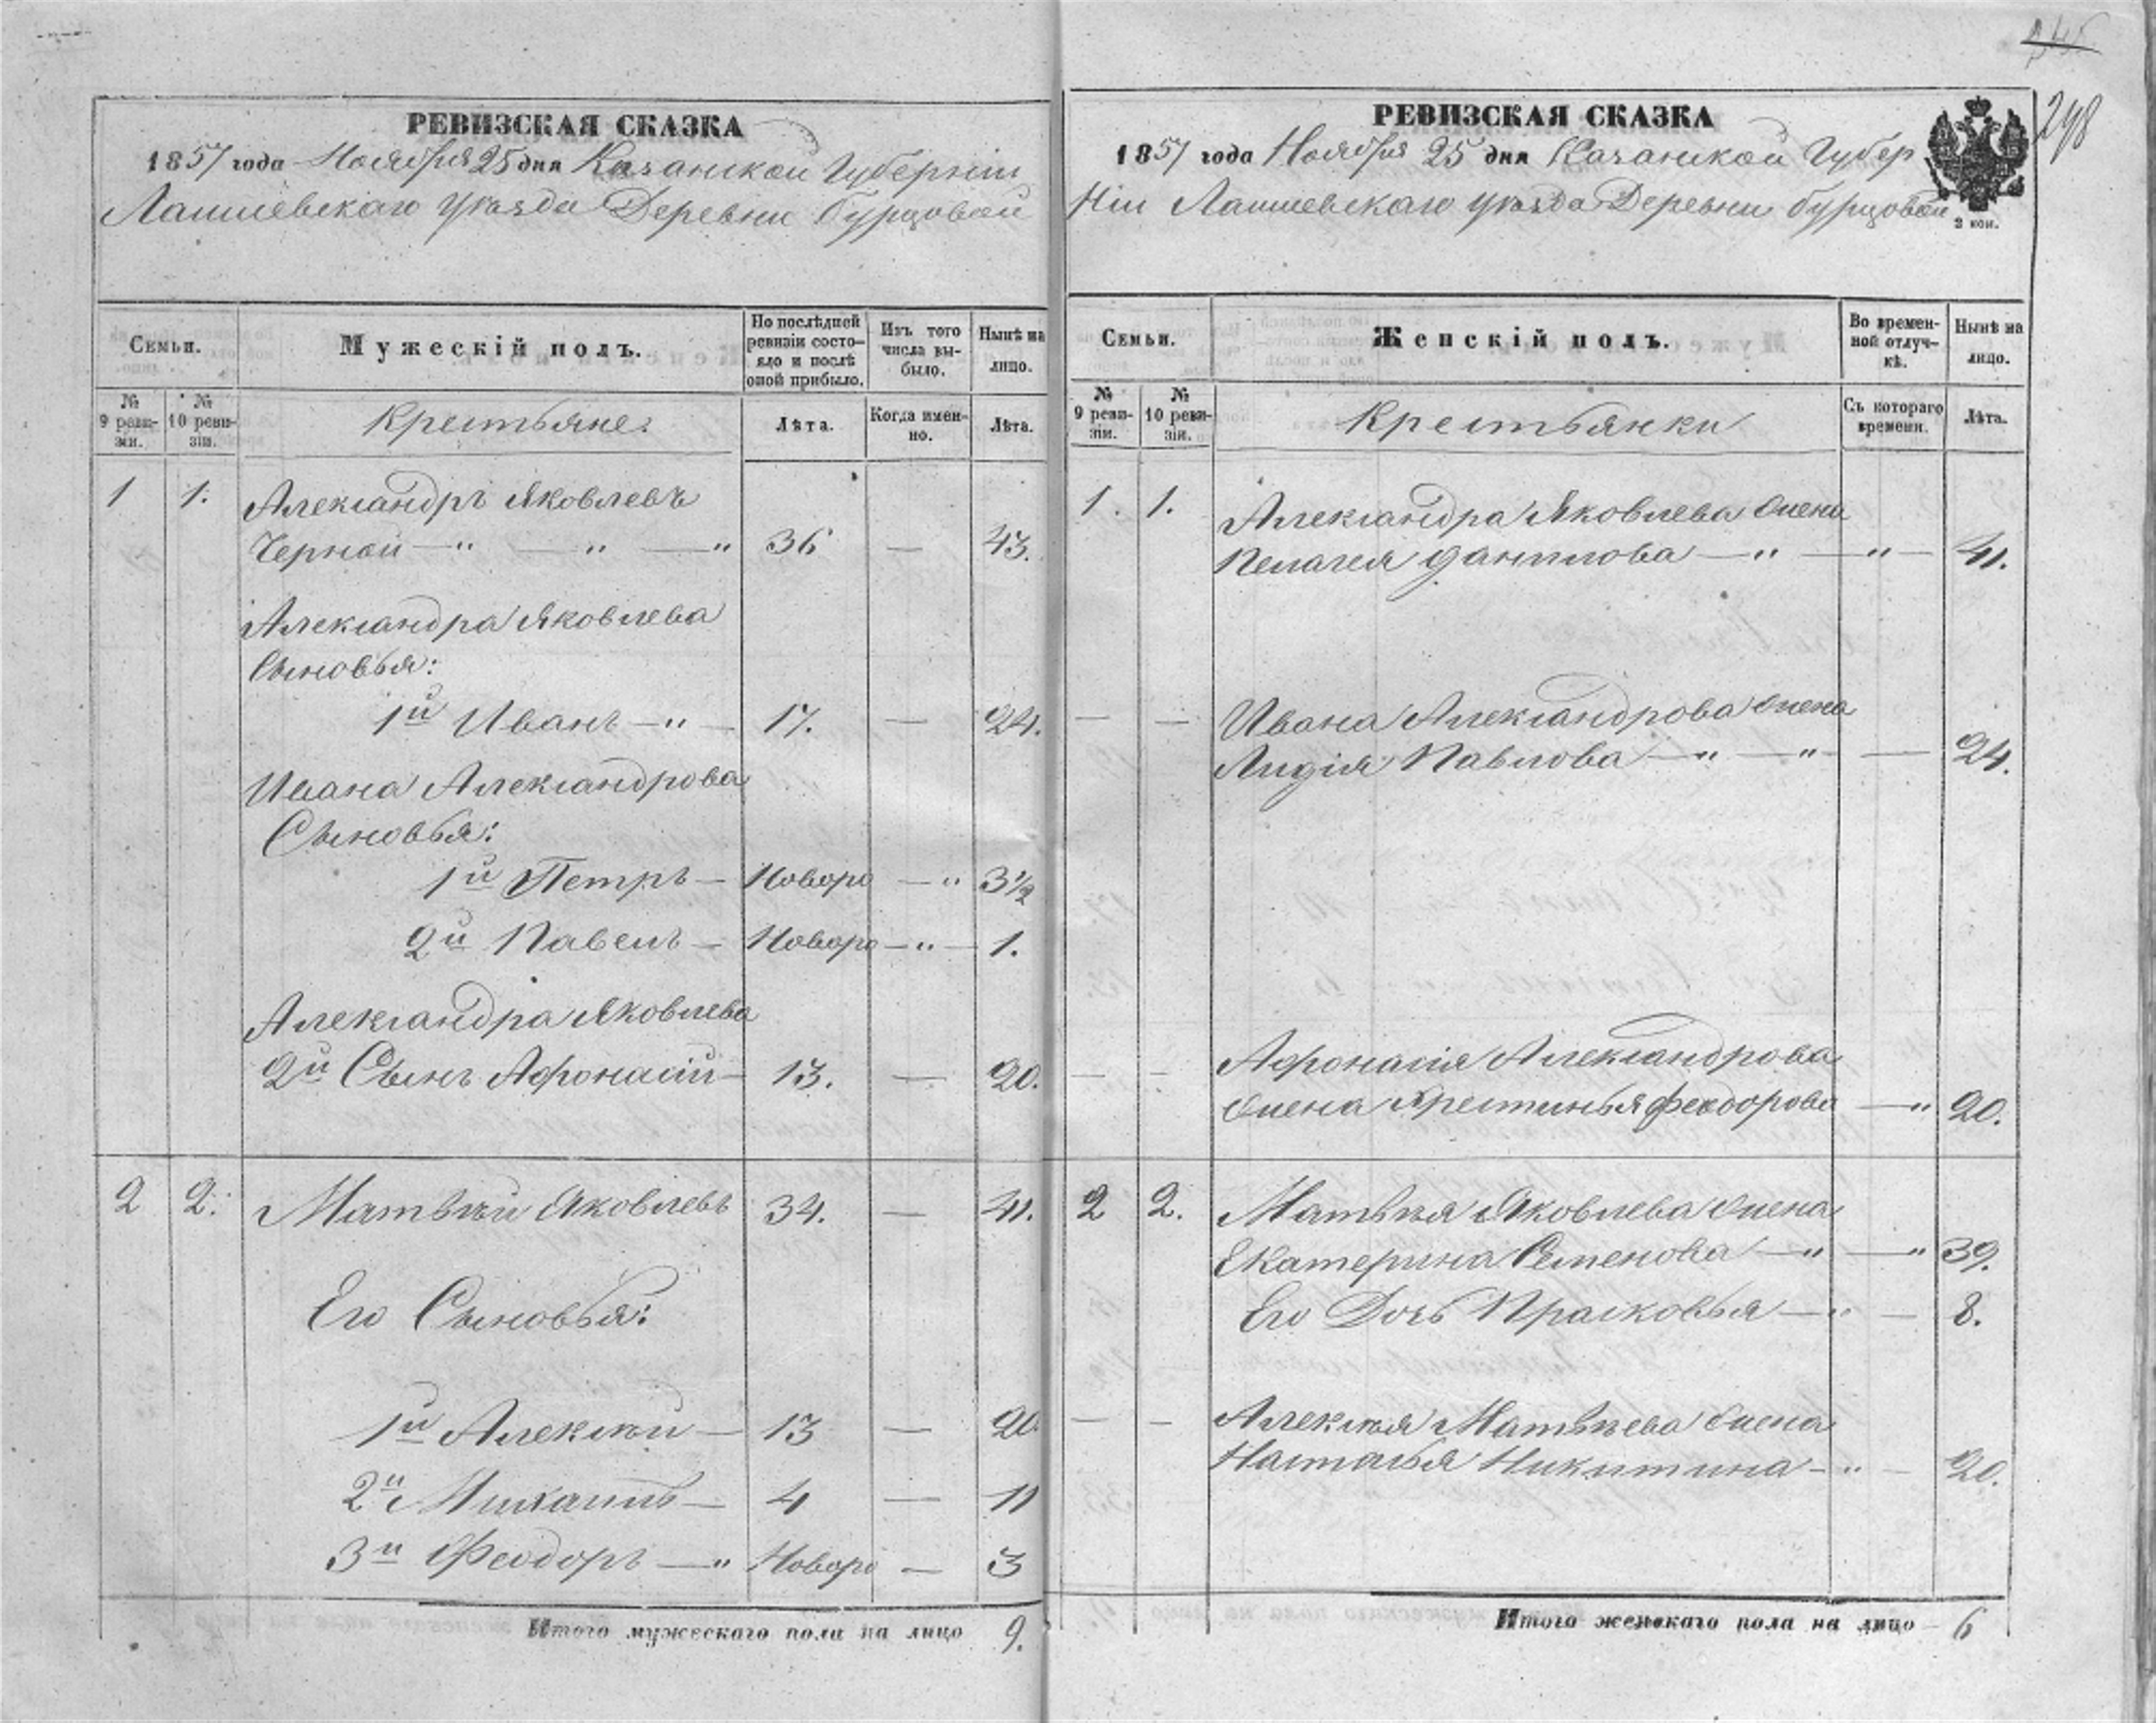 РЕВИЗСКАЯ СКАЗКА
1857 года Ноября 25 дня Казанской Губерніи
Лаишевскаго уѣзда Деревни Бурцовой
Семьи.
Мужескій полъ.
По послѣдней ревизіи состояло и послѣ оной прибыло.
Изъ того числа выбыло.
Нынѣ на лицо.
№ 9 ревизіи.
№ 10 ревизіи.
Крестьяне:
Лѣта.
Когда именно.
Лѣта.
1 1. Александръ Яковлевъ
Черной — " — " — " 36 — 43.
Александра Яковлева
Сыновья:
1й Иванъ — " — 17. — 24.
Ивана Александрова
Сыновья:
1й Петръ — Новоро — " 3½
2й Павелъ — Новоро — " — 1.
Александра Яковлева
2й Сынъ Афонасій — 13. — 20.
2 2. Матвѣй Яковлевъ 34. — 41.
Его Сыновья:
1й Алексѣй — 13 — 20.
2й Михаилъ — 4 — 11
3й Феодоръ — " Новоро — 3
Итого мужескаго пола на лицо 9.
248
РЕВИЗСКАЯ СКАЗКА
1857 года Ноября 25 дня Казанской Губер
ніи Лаишевскаго уѣзда Деревни Бурцовой
2 коп.
Семьи.
Женскій полъ.
Во временной отлучкѣ.
Нынѣ на лицо.
№ 9 ревизіи.
№ 10 ревизіи.
Крестьянки
Съ котораго времени.
Лѣта.
1. 1. Александра Яковлева жена
Пелагея Данилова — " — " — 41.
— — Ивана Александрова жена
Лидія Павлова — " — " — 24.
— — Афонасія Александрова
жена Хрестинья Феодорова — " 20.
2 2. Матвѣя Яковлева жена
Екатерина Семенова — " — " 39.
Его Дочь Прасковья — " — 8.
— — Алексѣя Матвѣева жена
Наталья Никитина — " — 20.
Итого женскаго пола на лицо — 6